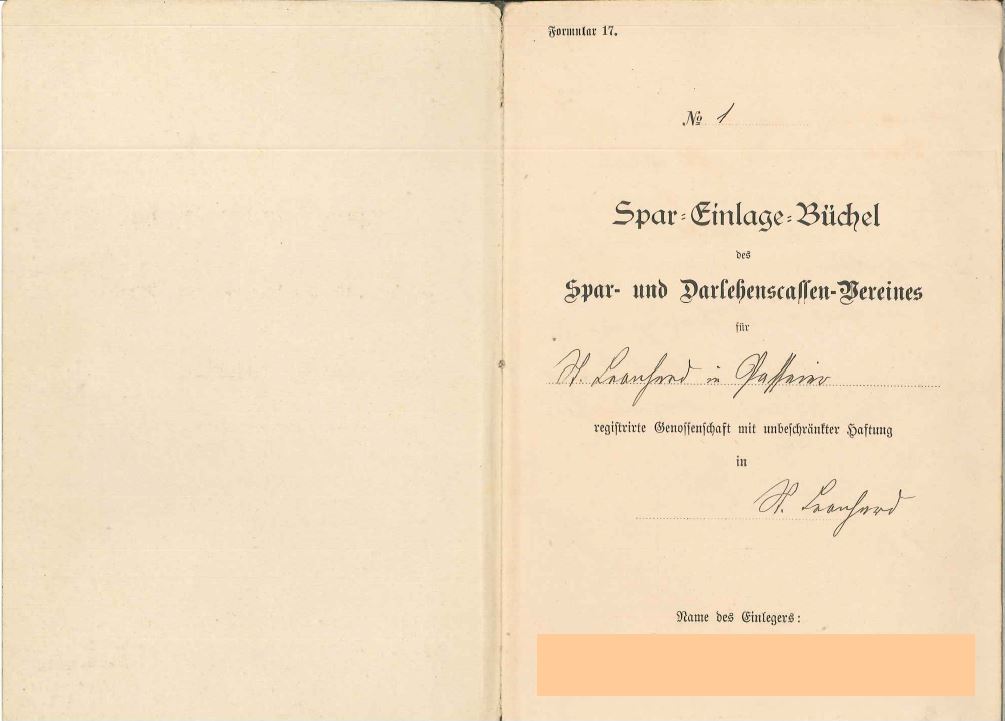 Formular 17.
№ 1
Spar-Einlage-Büchel
des
Spar- und Darlehenscassen-Vereines
für
St. Leonhard in Passeier
registrirte Genossenschaft mit unbeschränkter Haftung
in
St. Leonhard
Name des Einlegers: